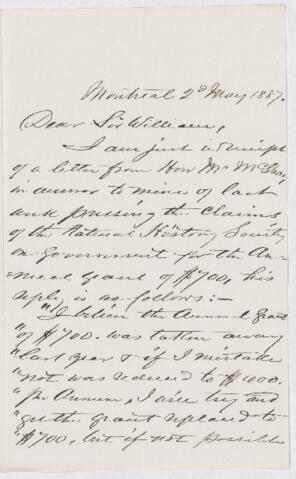 Montreal 2d May 1887.
Dear Sir William,
I am just in receipt
of a letter from Hon Mr McLane,
in answer to mine of last
week pressing the claims
of the Natural History Society
on Government for the An-
nual grant of $700, his
reply is as follows:-
"I believe the Annual Grant
"of $700. was taken away
"last year & if I mistake
"not was reduced to $400.
"per Annum, I will try and
"get the grant replaced to
"$700, but if not possible